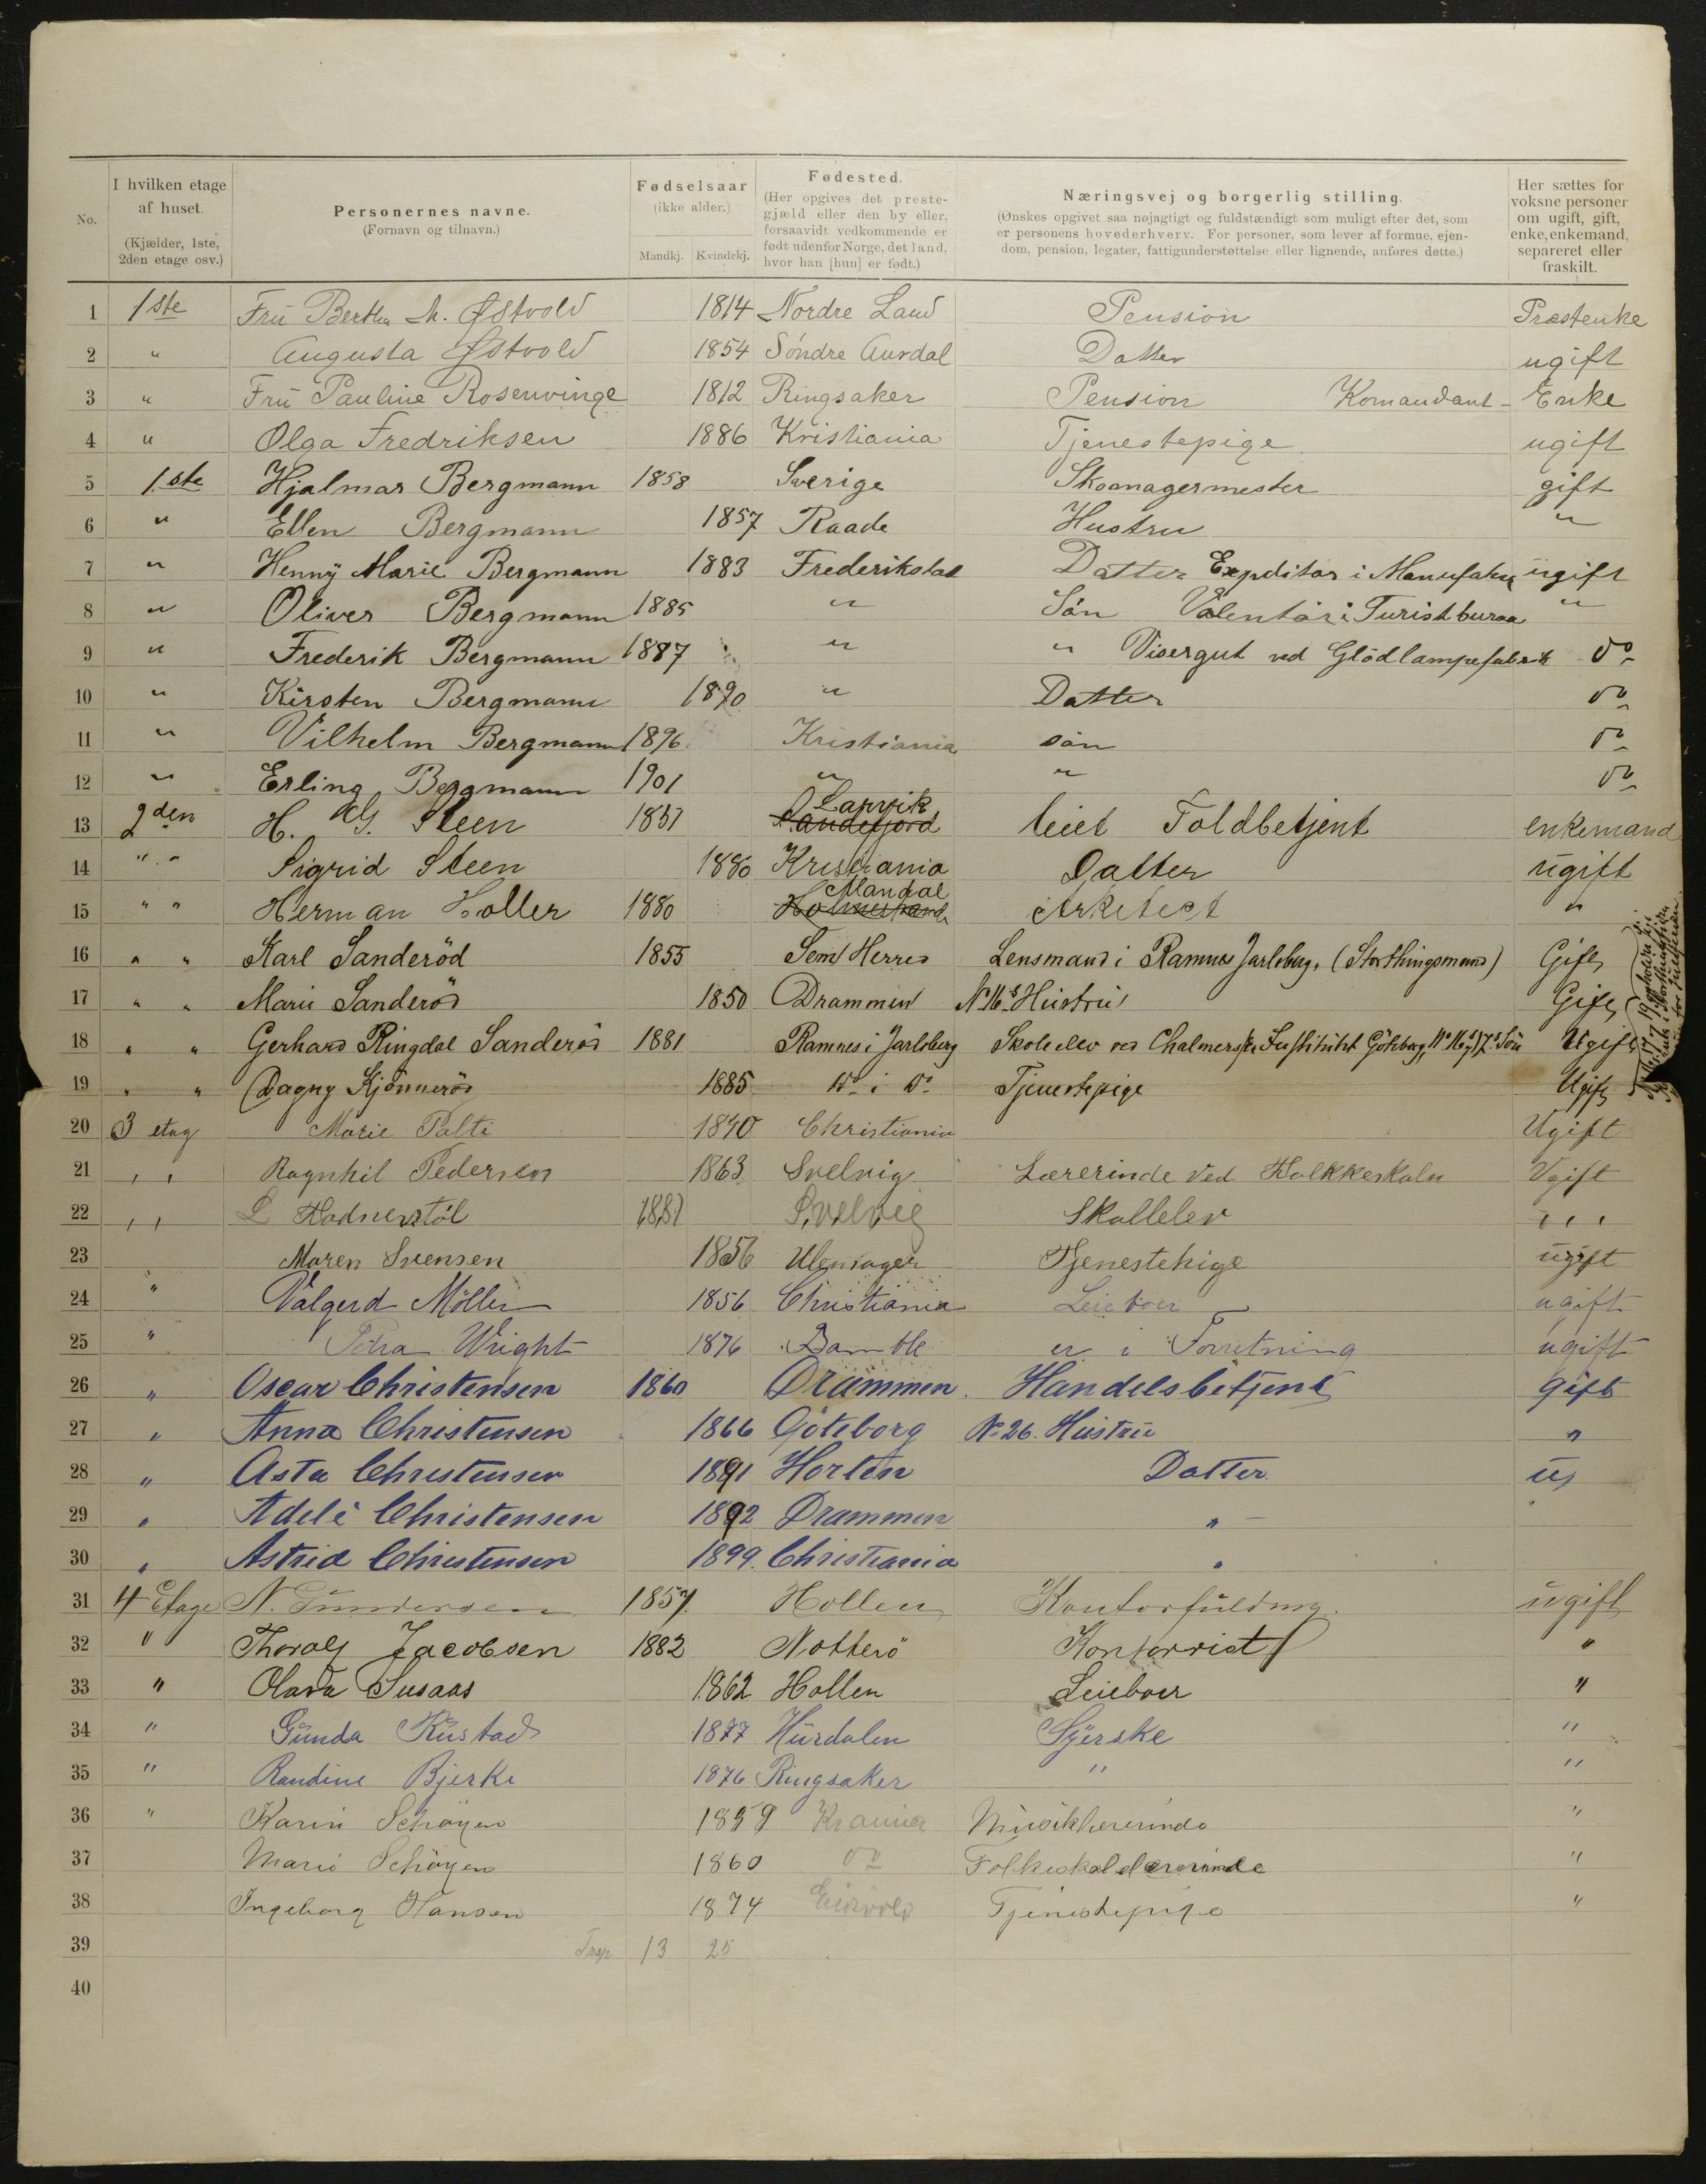 No.
I hvilken etage af huset. (Kjælder, 1ste, 2den etage osv.)
Personernes navne. (Fornavn og tilnavn.)
Fødselsaar (ikke alder.) Mandkj. Kvindekj.
Fødested. (Her opgives det prestegjæld eller den by eller, forsaavidt vedkommende er født udenfor Norge, det land, hvor han [hun] er født.)
Næringsvej og borgerlig stilling. (Ønskes opgivet saa nøjagtigt og fuldstændigt som muligt efter det, som er personens hovederhverv. For personer, som lever af formue, ejendom, pension, legater, fattigunderstøttelse eller lignende, anføres dette.)
Her sættes for voksne personer om ugift, gift, enke, enkemand, separeret eller fraskilt.
1 1ste Fru Bertha M. Østvold 1814 Nordre Land Pension Præstenke
2 " Augusta Østvold 1854 Söndre Aurdal Datter ugift
3 " Fru Pauline Rosenvinge 1812 Ringsaker Pension Komandant- Enke
4 " Olga Fredriksen 1886 Kristiania Tjenestepige ugift
5 1ste Hjalmar Bergmann 1858 Sverige Skomagermester gift
6 " Ellen Bergmann 1857 Raade Hustru "
7 " Henny Marie Bergmann 1883 Frederikstad Datter Expeditør i Manufaktur ugift
8 " Oliver Bergmann 1885 " Sön Volentör i Turistburaa "
9 " Frederik Bergmann 1887 " " Visergut ved Glödlampefabrik do
10 " Kirsten Bergmann 1890 " Datter do
11 " Vilhelm Bergmann 1896 Kristiania sön do
12 " Erling Bergmann 1901 " " do
13 2den H. G. Steen 1851 Sandefjord Larvik Toldbetjent enkemand
14 " " Sigrid Steen 1880 Kristiania Datter ugift
15 " " Herman Holler 1880 Holmestrand Mandal Arketect "
16 " " Karl Sanderöd 1855 Sem Herred Lensmand i Ramnes Jarlsberg, (Storthingsmand) Gift
17 " " Marie Sanderöd 1850 Drammen No 16s Hustru Gift
18 " " Gerhard Ringdal Sanderöd 1881 Ramnes i Jarlsberg Skoleelev ved Chalmerske Institutet Göteborg, No 16 og 17s Sön Ugift
19 " " Dagny Kjönneröd 1885 Do i Do Tjenestepige Ugift
20 3 etag Marie Palti 1840 Christiania Ugift
21 " Ragnhil Pedersen 1863 Svelvig Lærerinde ved Folkkeskoln Ugift
22 " L Hadnerstöl 1881 Svelvig Skollelev "
23 Maren Svensen 1856 Ulensager Tjenestehige ugift
24 " Valgerd Möller 1856 Christiania Leieboer ugift
25 " Petra Wright 1876 Bamble er i Forretning ugift
26 " Oscar Christensen 1860 Drammen Handelsbetjent gift
27 " Anna Christensen 1866 Göteborg No 26. Hustru "
28 " Asta Christensen 1891 Horten Datter ug
29 " Adele Christensen 1892 Drammen "
30 " Astrid Christensen 1899. Christiania "
31 4 Etage N. Gundersen 1857. Hollen Kontorfuldmg. ugift
32 " Thoralf Jacobsen 1882 Nötterö Kontorrist "
33 " Olava Susaas 1862 Hollen Leieboer "
34 " Gunda Rustad 1877 Hurdalen Syerske "
35 " Randine Bjerke 1876 Ringsaker " "
36 " Karin Schöyen 1859 Krania Musiklærerinde "
37 Marie Schöyen 1860 do Folkeskolelærerinde "
38 Ingeborg Hansen 1874 Eidsvold Tjenestepige "
39 Trsp 13 25
40